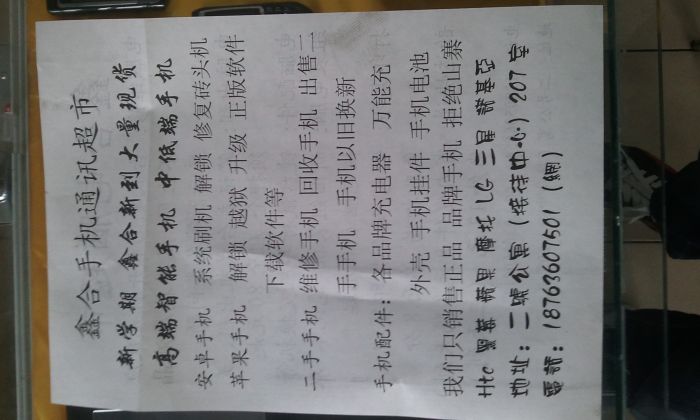 鑫合手机通讯超市
新学期 鑫合新到大量现货
高端智能手机 中低端手机
安卓手机 系统刷机 解锁 修复砖头机
苹果手机 解锁 越狱 升级 正版软件
下载软件等
二手手机 维修手机 回收手机 出售二
手手机 手机以旧换新
手机配件：各品牌充电器 万能充
外壳 手机挂件 手机电池
我们只销售正品 品牌手机 拒绝山寨
Htc 黑莓 蘋果 摩托 LG 三星 諾基亞
地址：二號公寓（接待中心）207室
電話：18763607501（網）